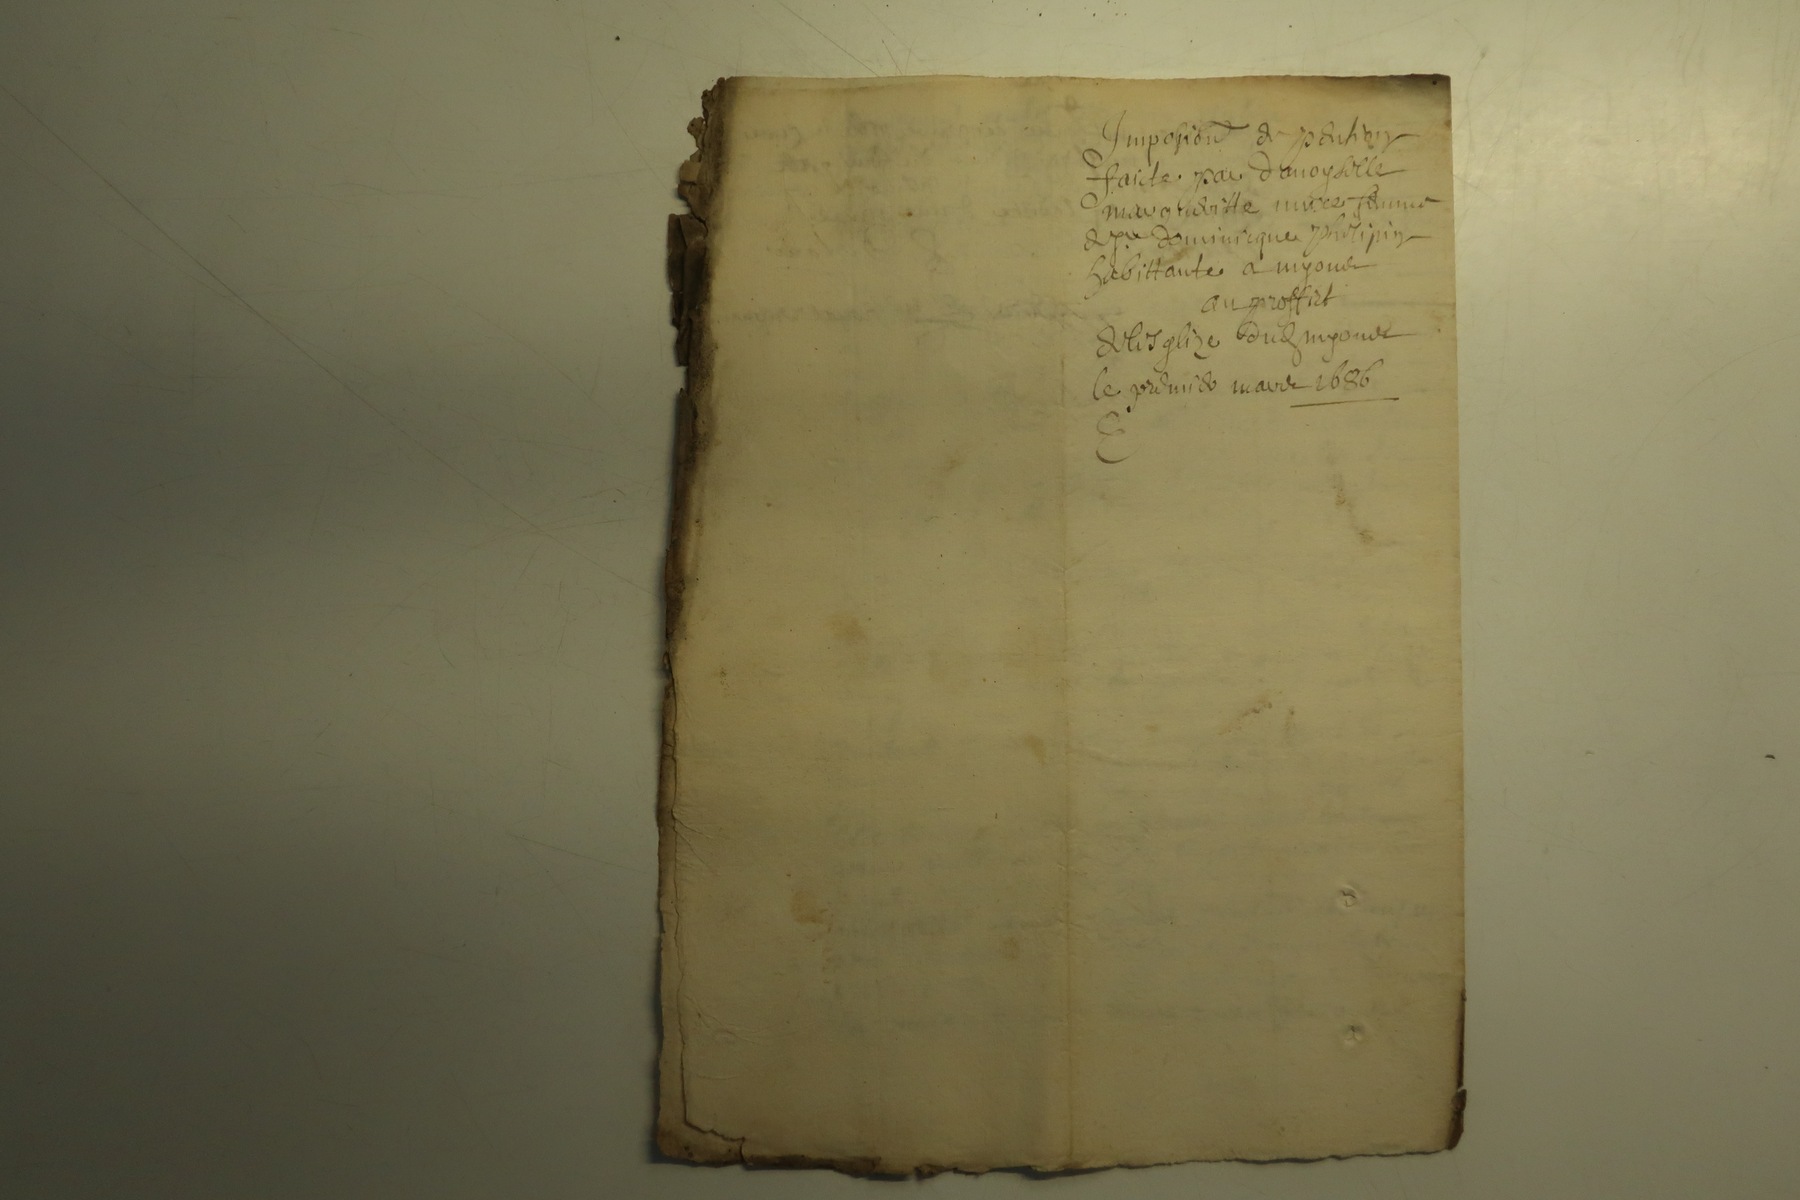 Imposion de pention
faicte par damoyselle
margueritte mixce femme
de Sr dominicque philipin
habittante a myonde
au proffict
de lesglize dud myonde
le premier mars 1686